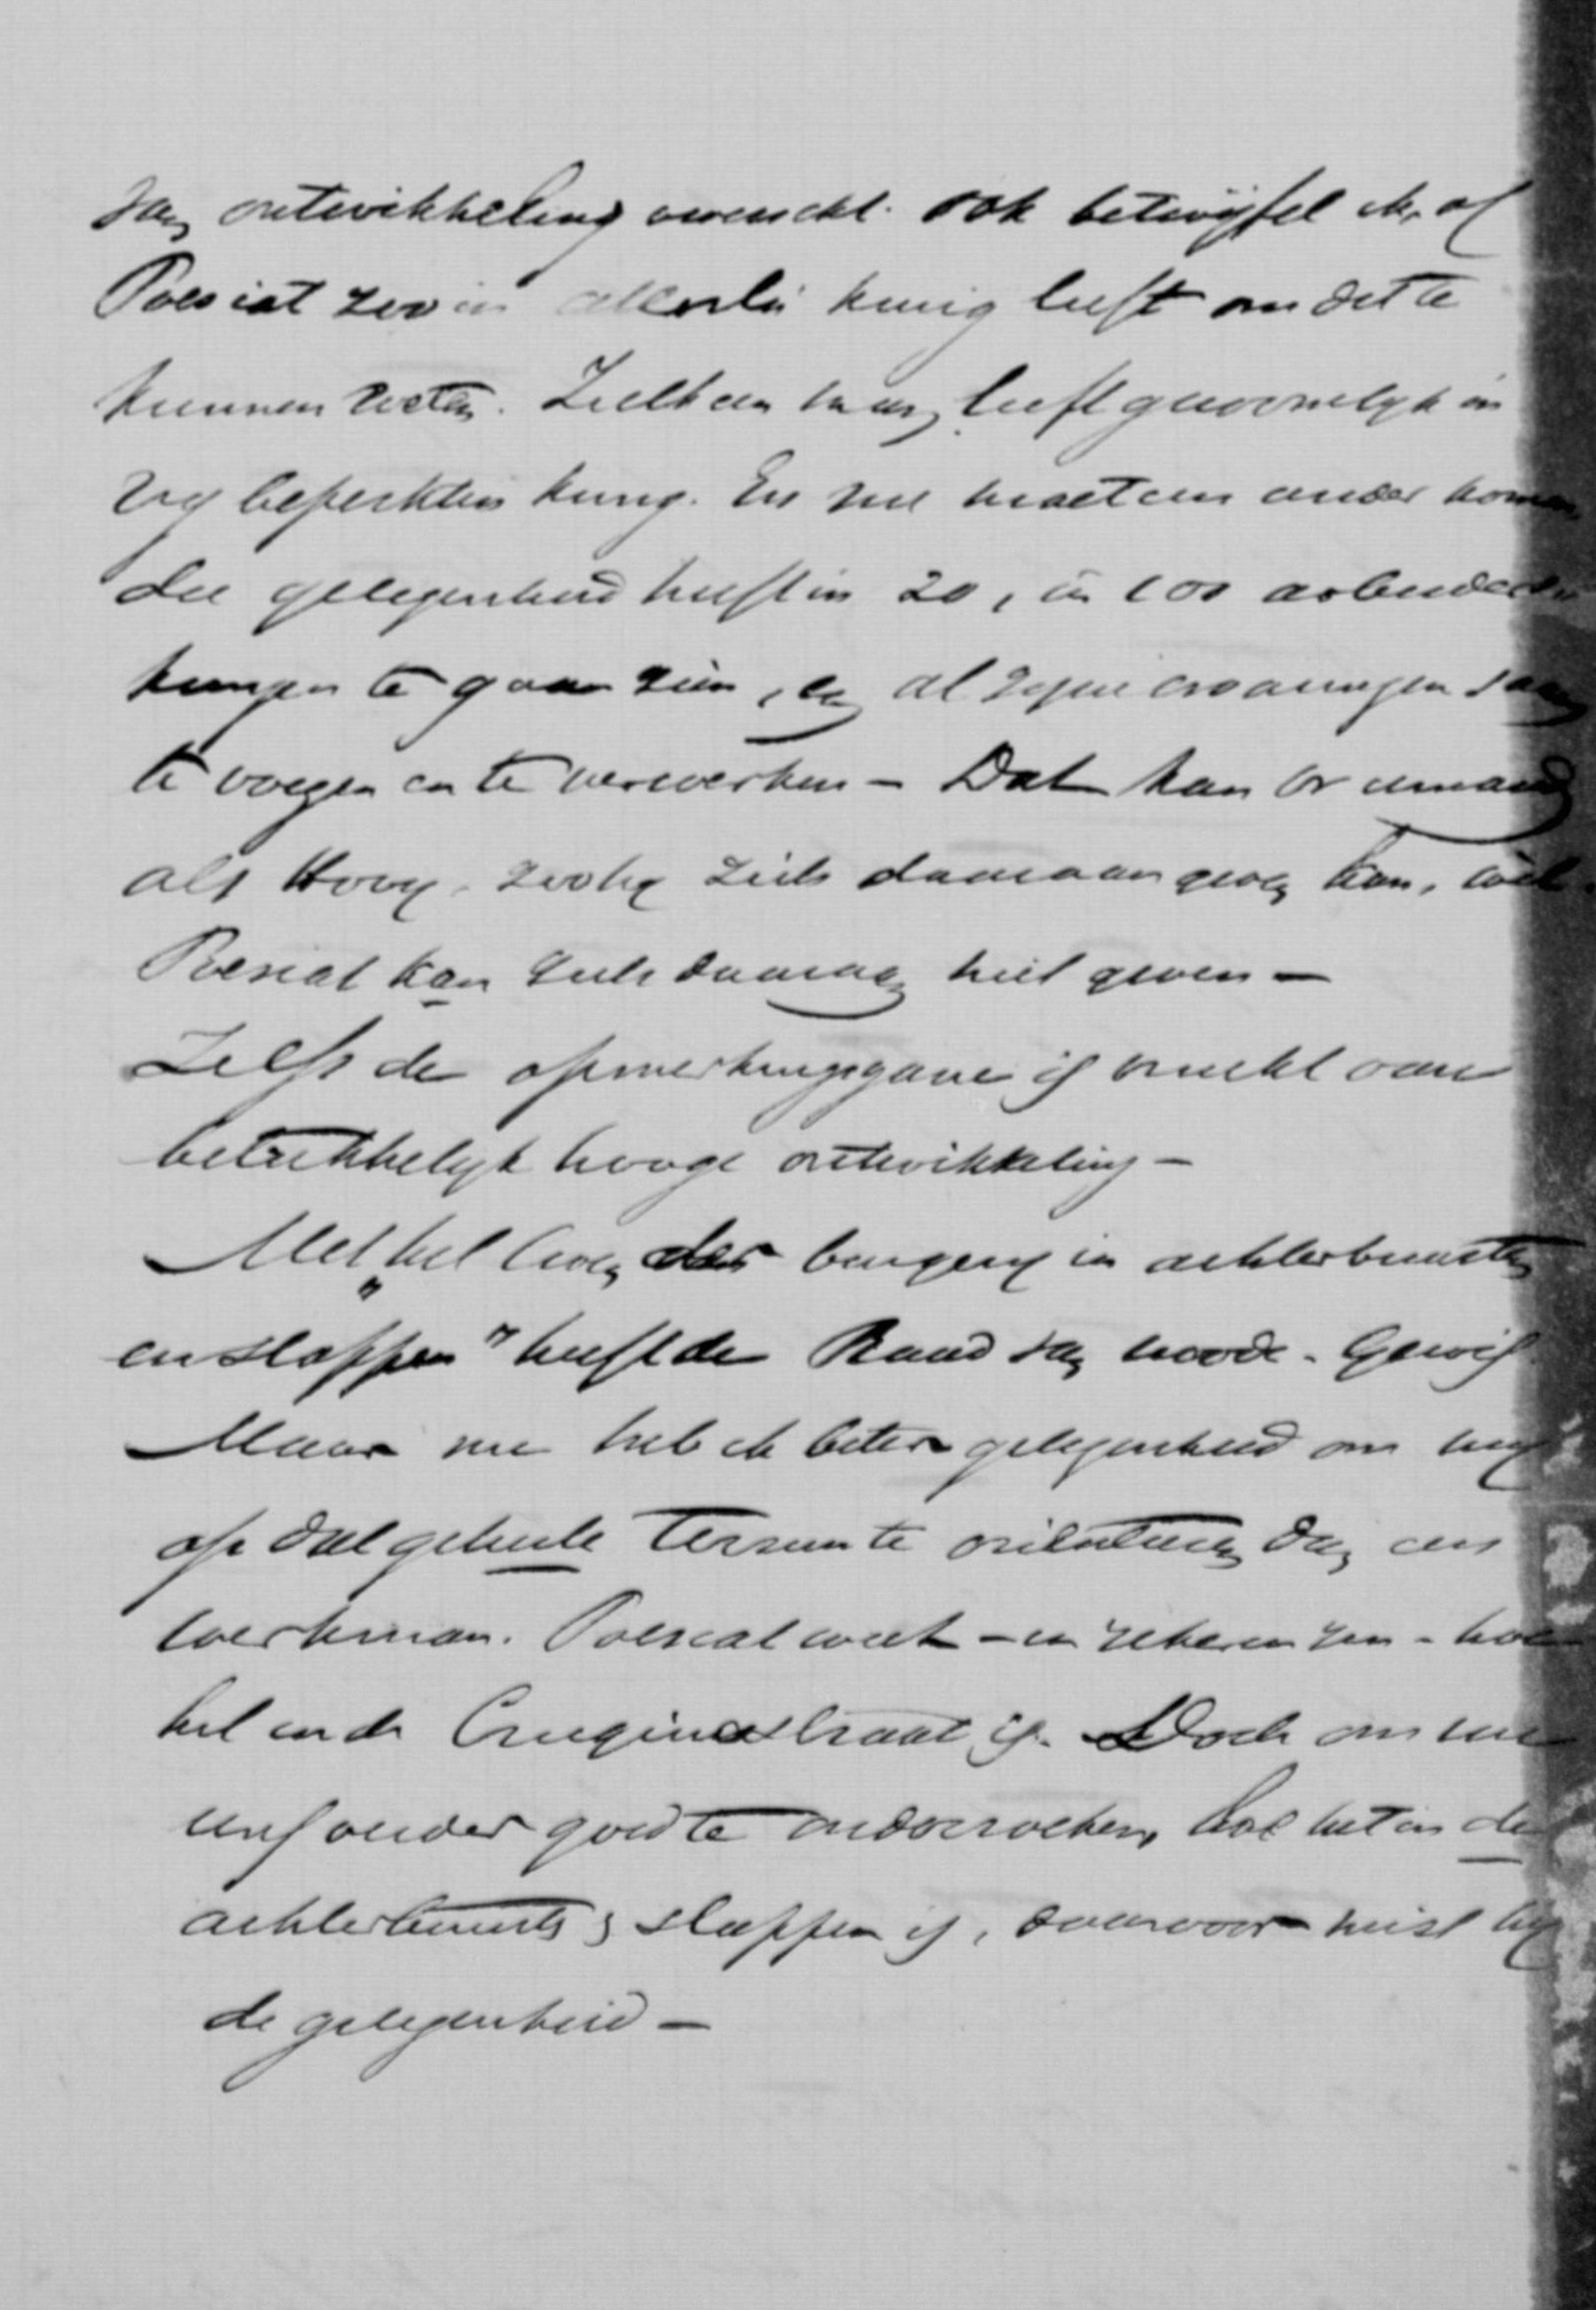 ontwikkeling vereischt. Ook betwijfel ik, of
Poesiat zoo in allerlei kring leeft om dit te
kunnen weten. Zulk een man leeft gewoonlijk in
vrij beperkten kring. En nu moet een ander komen
die gelegenheid heeft in 20, in 100 arbeiders
kringen te gaan zien, en al zijne ervaringen saam
te voegen en te verwerken - Dat kan or iemand
als Hovy, zoo hij zich daaraan geven kan, niet
Poesiat kan zich daaraan niet geven -
Zelfs de opmerkingsgave is vrucht van
betrekkelijk hooge ontwikkeling -
Met "het leven der burgerij in achterbuurten
en sloppen" heeft de Raad van noode. Gewis
Maar nu heb ik beter gelegenheid om mij
op dat geheele terrein te oriënteeren dan een
werkman. Poesiat weet - en zeker en zeer - hoe
het in de straat is. Doch om nu
eens zonder goed te onderzoeken, hoe het in de
achterbuurten & sloppen is, daarvoor mist hij
de gelegenheid -